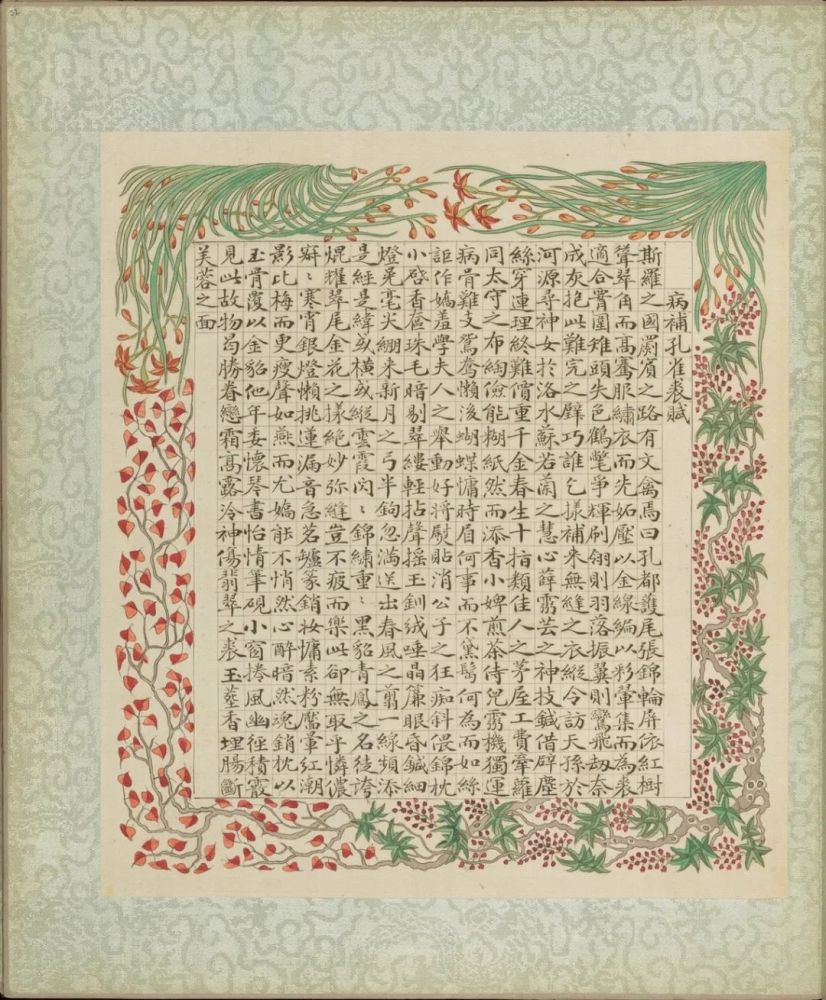 病補孔雀裘賦
斯羅之國罽賓之路有文禽焉曰孔都護尾張錦輪屏依紅樹
聳翠角而高騫服繡衣而先妬壓以金線編以彩翬集而為裘
適合賓圍雉頭失色鶴氅爭輝刷翎則羽落振翼則鸞飛劫奈
成灰抱此難完之璧巧誰乞樣補來無縫之衣縱令訪天孫於
河源尋神女於洛水蘇若蘭之慧心薛靈芸之神技鍼借辟塵
絲穿連理終難償重千金春生十指類佳人之茅屋工費牽蘿
同太守之布絢儉能糊紙然而添香小婢煎茶侍兒靄機獨運
病骨難支鴛鴦懶浚蝴蝶慵時眉何事而不黛髩何為而如絲
詎作嬌羞學夫人之舉動好將熨貼消公子之狂痴斜偎錦枕
小啓香奩珠毛暗剔翠縷輕拈聲搖玉釧絨唾晶簾眼昏鍼細
燈毫尖綳來新月之弓半鉤忽滿送出春風之剪一線頻添
是經是緯或橫或縱雲霞閃〻錦繡重〻黑貂青鳳之名徒誇
焜耀翠尾金花之樣絕妙弥縫豈不疲而樂此卻無取乎憐儂
〻寒宵銀燈懶挑蓮漏音急茗鑪篆銷妝慵素粉靨暈紅潮
影比梅而更瘦聲如燕而尤嬌能不悄然心醉暗然魂銷枕以
玉骨覆以金貂他年委懷琴書怡情筆硯小窗捲風幽徑積霰
見此故物曷勝眷戀霜高露冷神傷翡翠之裘玉塟香埋腸斷
芙蓉之面